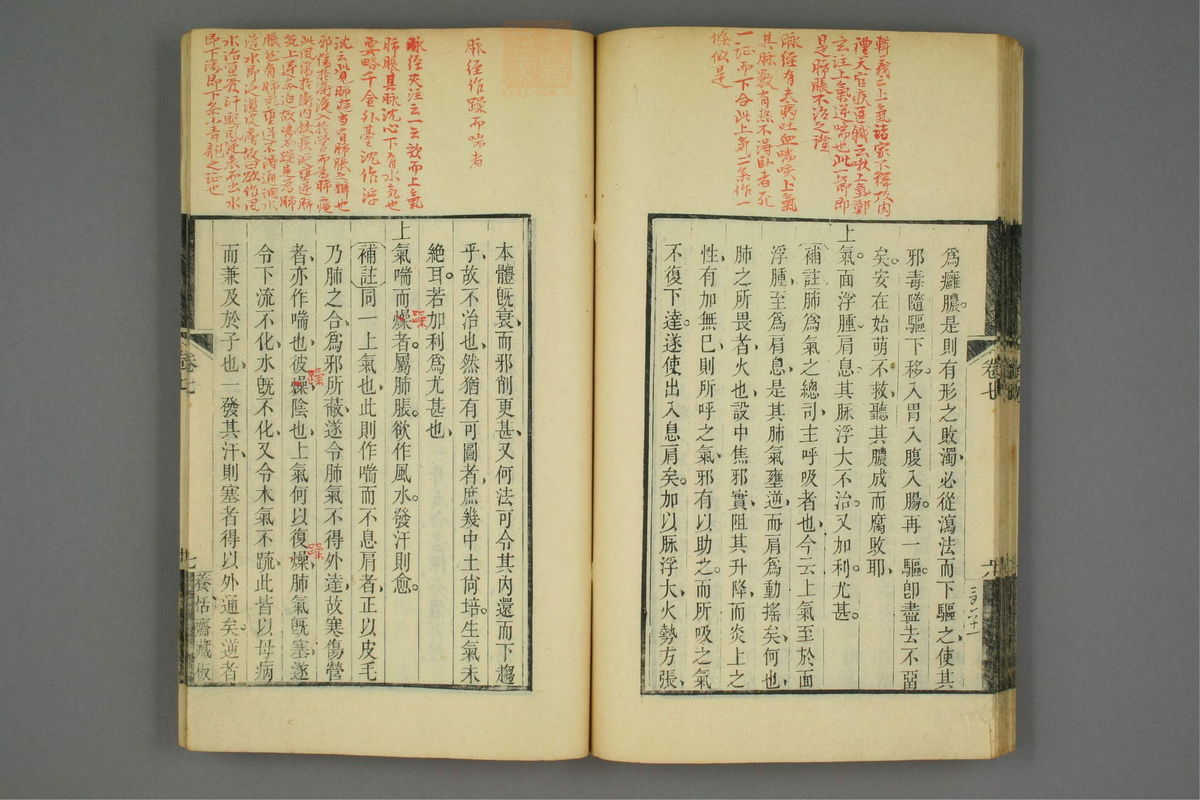 輯義云上氣諸家不釋攷周
禮天官疾醫職云嗽上氣鄭
玄注上氣逆喘也此一節即
是肺脹不治之證
脉經有夫病吐血喘咳上氣
其脉數有熱不得臥者死
一証而下合此上氣二条作一
條似是
爲癰膿是則有形之敗濁必從瀉法而下驅之使其
邪毒隨驅下移入胃入腹入腸再一驅卽盡去不畱
矣安在始萌不救聽其膿成而腐敗耶
上氣面浮腫肩息其脉浮大不治又加利尤甚
補註肺爲氣之總司主呼吸者也今云上氣至於面
浮腫至爲肩息是其肺氣壅逆而肩爲動搖矣何也
肺之所畏者火也設中焦邪實阻其升降而炎上之
性有加無已則所呼之氣邪有以助之而所吸之氣
不復下達遂使出入息肩矣加以脉浮大火勢方張
卷七
六
脉經作躁而喘者
脉經夾注云一云欬而上氣
肺脹其脉沈心下有水氣也
要略千金外臺沈作浮
本體旣衰而邪削更甚又何法可令其內還而下趨
乎故不治也然猶有可圖者庶幾中土尙培生氣未
絶耳若加利爲尤甚也
上氣喘而燥者屬肺脹欲作風水發汗則愈
躁
補註同一上氣也此則作喘而不息肩者正以皮毛
乃肺之合爲邪所蔽遂令肺氣不得外達故寒傷營
者亦作喘也彼燥陰也上氣何以復燥肺氣旣塞遂
躁
躁
令下流不化水旣不化又令木氣不疏此皆以母病
而兼及於子也一發其汗則塞者得以外通矣逆者
卷七
七
養恬齋藏板